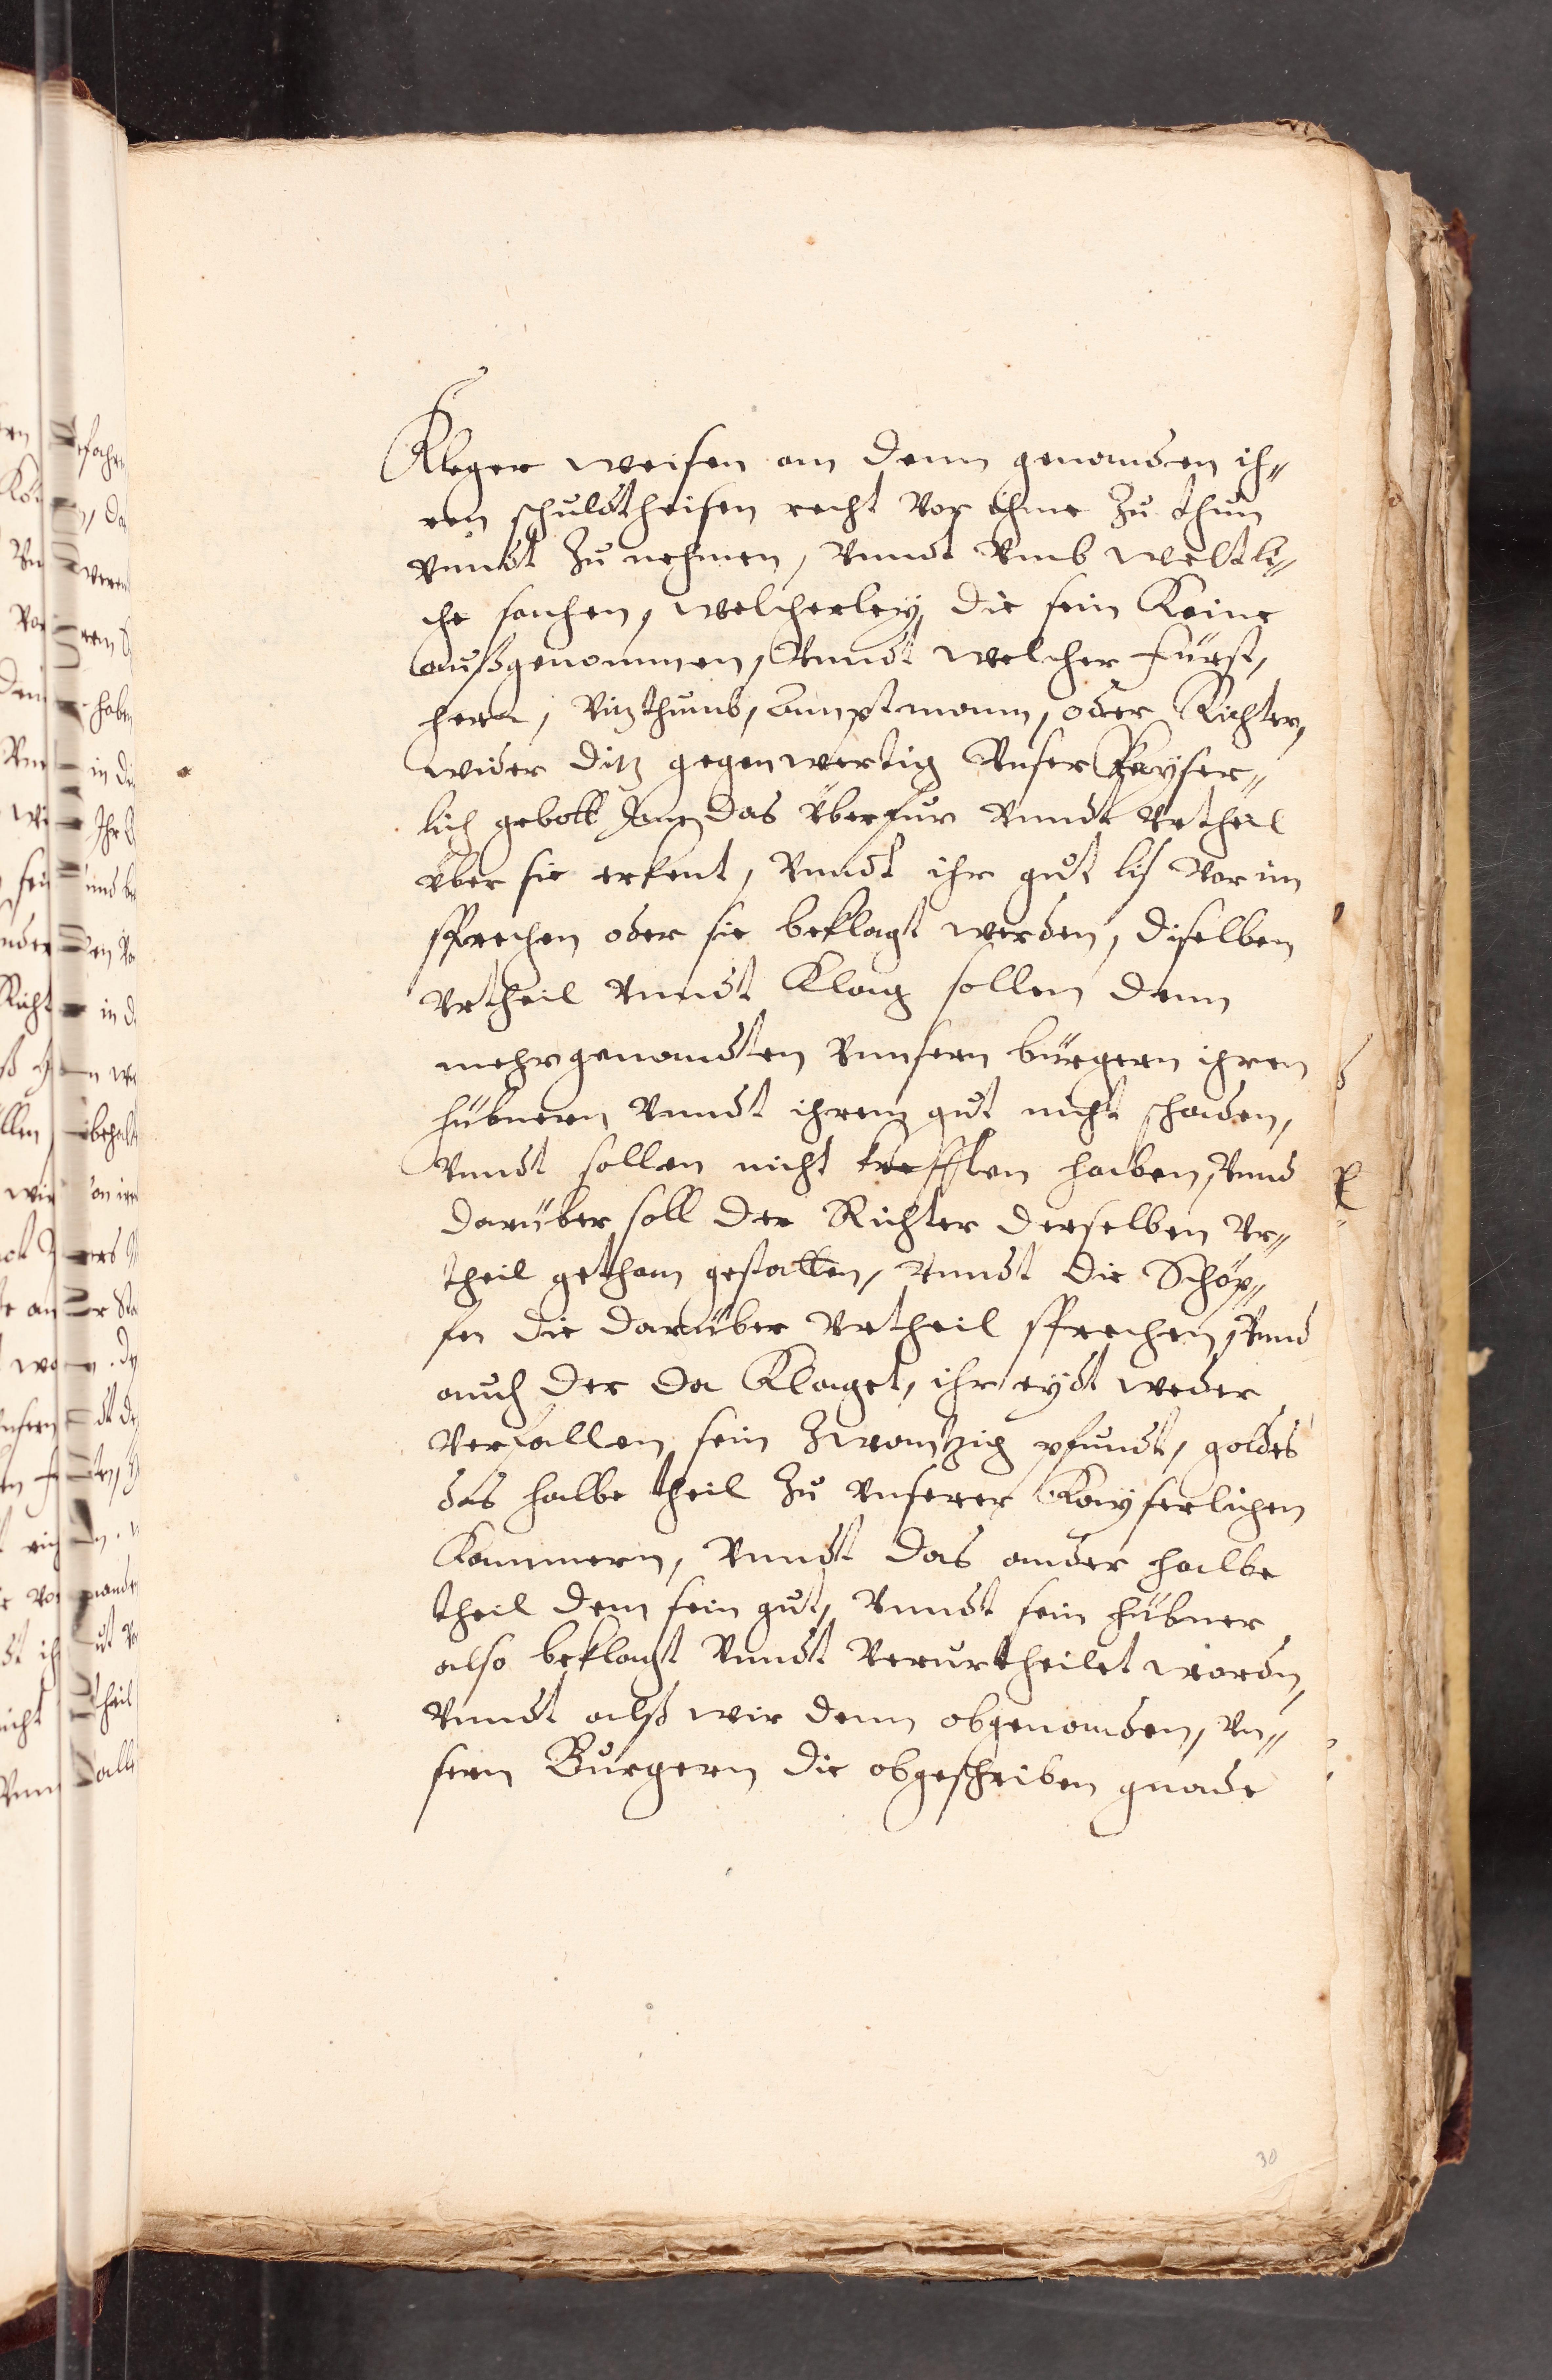 Kleger weisen an denn genanden ih„
ren schuldtheisen recht vor ihme zu thun
vnndt zu nehmen, vnndt vmb weltli„
che sachen, welcherley, die sein Keine
außgenommen, Vnndt welcher Fürst,
herr, Vitzthumb, Amptmann, oder Richter,
wider ditz gegenwertig Vnser Kayser„
lich gebott Jemandas überfur vnndt vrtheil
über sie erkent, vnndt ihr gut lis vor im
sprechen oder sie beklagt werden, diselben
vrtheil vnndt Klag sollen denn
mehrgenandten vnnsern bürgern ihren
hübnern vnndt ihrem gut nicht schaden,
Vnndt sollen nicht krefften haben, Vnnd
darüber soll der Richter derselben Vr„
theil gethan gestatten, vnndt die Schöp„
fen die darüber vrtheil sprechen, Vnnd
auch der da Klaget, ihr eydt weder
verfallen sein zwantzig pfundt, goldes
das halbe theil zu vnserer Kayserlichen
Kammern, vnndt das ander halbe
theil dem sein gut, vnndt sein hübner
also beklagt vnndt verurtheilet wordn,
vnndt alß wir denn obgenanden, vn„
sern Burgern die obgeschriben gnade
30